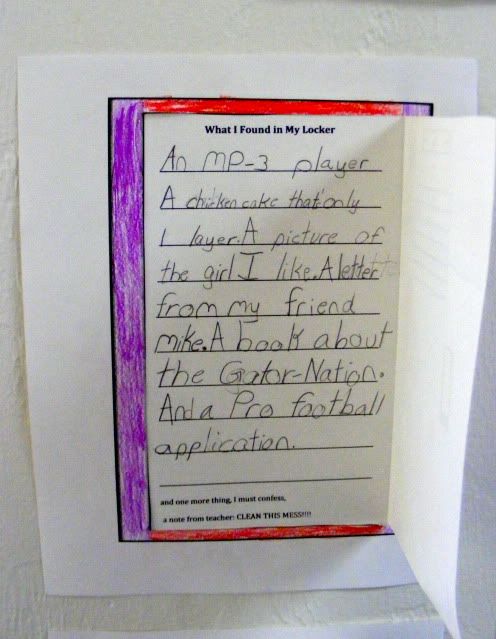 What I Found in My Locker
An MP-3 player
A chicken cake that only
1 layer. A picture of
the girl I like. A letter
from my friend
mike. A book about
the Gator-Nation.
And a Pro football
application.
and one more thing, I must confess,
a note from teacher: CLEAN THIS MESS!!!!